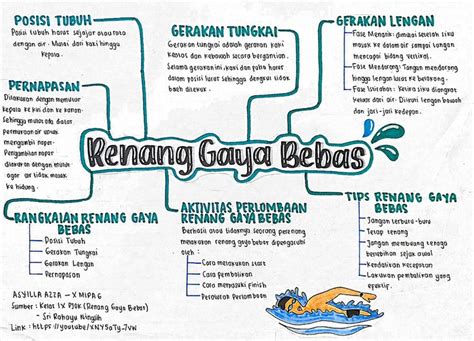 POSISI TUBUH
Posisi tubuh harus sejajar atau rata
dengan air. Mulai dari kaki hingga
kepala.
GERAKAN TUNGKAI
Gerakan tungkai adalah gerakan kaki
keatas dan kebawah secara bergantian.
Selama gerakan ini, kaki dan paha harus
dalam posisi lurus sehingga dengkul tidak
boleh ditekuk.
GERAKAN LENGAN
- Fase Menarik: dimulai setelah siku
masuk ke dalam air sampai lengan
mencapai bidang vertikal.
- Fase Mendorong: Tangan mendorong
hingga lengan lurus ke belakang.
- Fase Istirahat: Ketika siku diangkat
keluar dari air. Diikuti lengan bawah
dan jari-jari kedepan.
PERNAPASAN
Dilakukan dengan memutar
kepala ke kiri dan ke kanan.
Sehingga mulut ada diatas
permukaan air untuk
mengambil napas.
Pengambilan napas
dilakukan dengan mulut
agar air tidak masuk
ke hidung.
Renang Gaya Bebas
RANGKAIAN RENANG GAYA
BEBAS
Posisi Tubuh
Gerakan Tungkai
Gerakan Lengan
Pernapasan
AKTIVITAS PERLOMBAAN
RENANG GAYA BEBAS
Berhasil atau tidaknya seorang perenang
melakukan renang gaya bebas dipengaruhi
oleh :
Cara melakukan start
Cara pembalikan
Cara memasuki finish
Peraturan Perlombaan
TIPS RENANG GAYA
BEBAS
Jangan terburu-buru
Tetap tenang
Jangan membuang tenaga
Kendalikan kecepatan
Lakukan pembalikan yang
efektif
ASYILLA AZZA - X MIPA 6
Sumber : Kelas IX PJOK (Renang Gaya Bebas)
- Sri Rahayu Ningsih
Link :